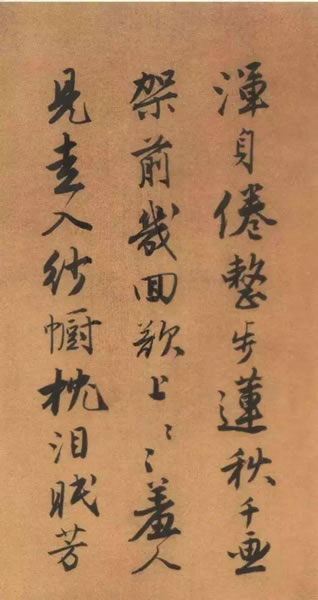 渾身倦整步蓮秋千画
架前幾回欲上〻〻羞人
見走入紗幮枕泪眠芳